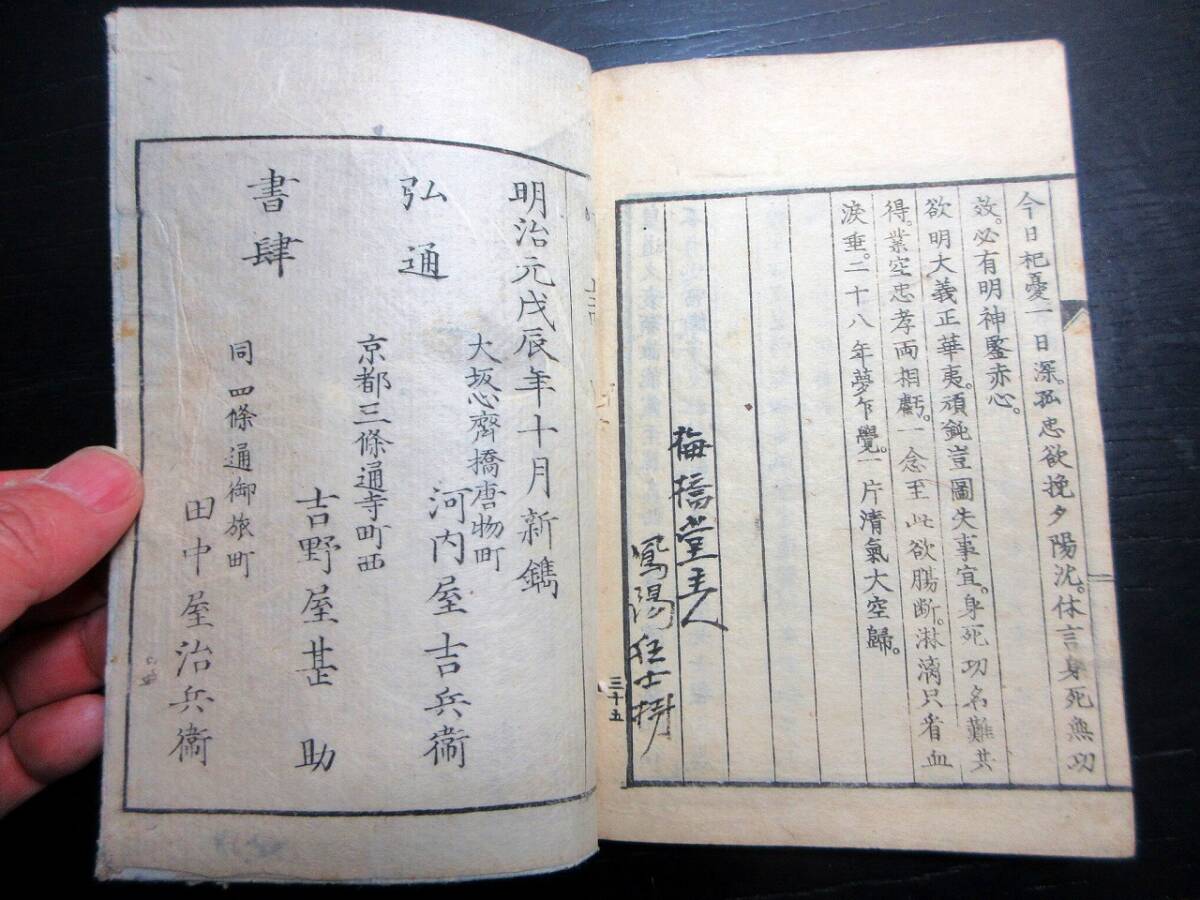 今日杞憂一日深。孤忠欲挽夕陽沈。休言身死無功
效。必有明神鑒赤心。
欲明大義正華夷。頑鈍豈圖失事宜。身死功名難共
得。業空忠孝両相虧。一念至此欲腸断。淋漓只看血
淚垂。二十八年夢乍覺。一片清氣大空歸。
梅橋堂主人
鳳陽狂士
三十五
明治元戊辰年十月新鐫
大坂心齊橋唐物町
河内屋吉兵衞
弘通
京都三條通寺町西
吉野屋甚助
書肆
同四條通御旅町
田中屋治兵衞